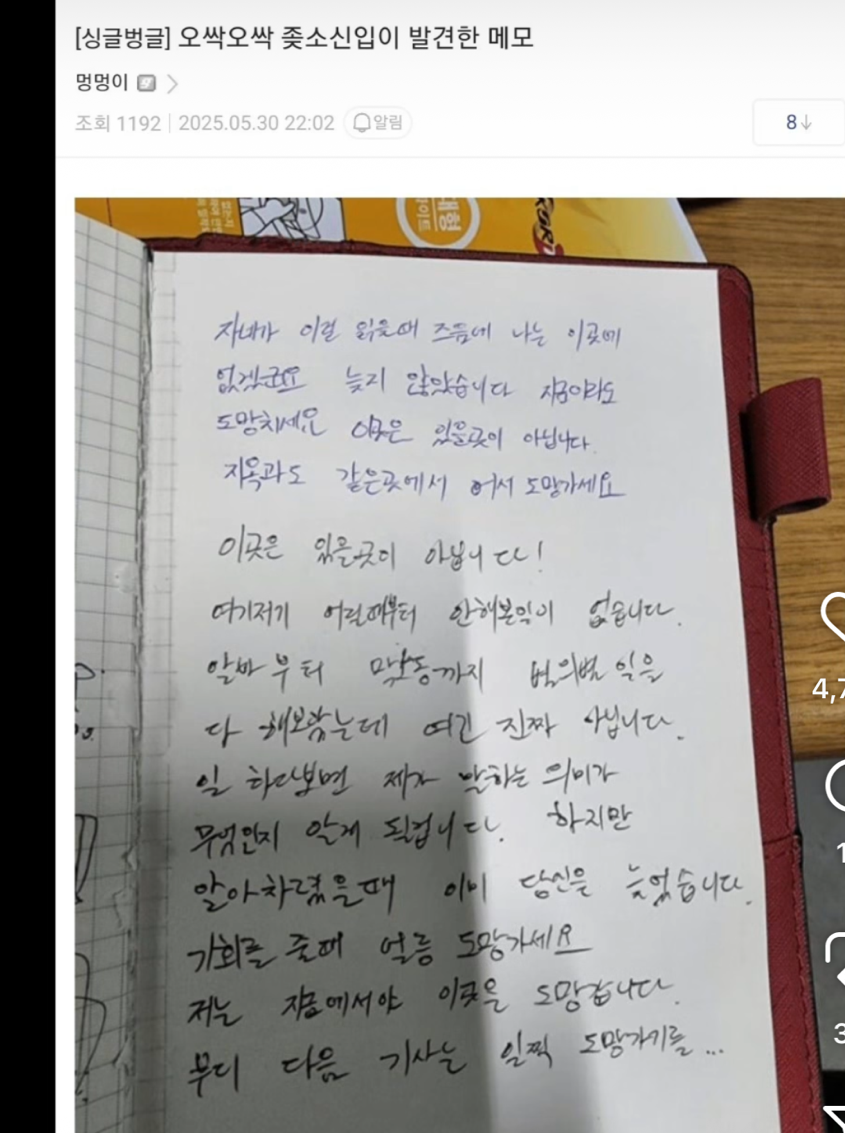 [싱글벙글] 오싹오싹 좆소신입이 발견한 메모
멍멍이
조회 1192 | 2025.05.30 22:02 알림
8↓
자네가 이걸 읽을때 즈음에 나는 이곳에
없겠군요 늦지 않았습니다 지금이라도
도망치세요 이곳은 있을곳이 아닙니다.
지옥과도 같은곳에서 어서 도망가세요
이곳은 있을곳이 아닙니다!
여기저기 어릴때부터 안해본일이 없습니다.
알바부터 막노동까지 별의별 일을
다 해보았는데 여긴 진짜 아닙니다.
일 하다보면 제가 말하는 의미가
무엇인지 알게 될겁니다. 하지만
알아차렸을때 이미 당신은 늦었습니다.
기회를 줄때 얼릉 도망가세요
저는 지금에서야 이곳을 도망갑니다.
부디 다음 기사는 일찍 도망가기를...
4,7
1
3